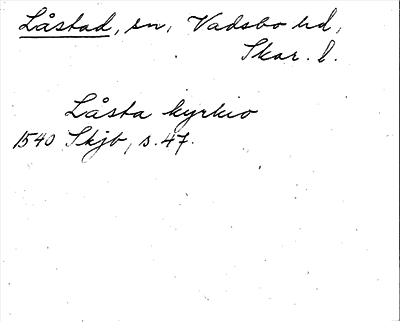 Låstad, sn, Vadsbo hd,
Skar. l.
Låsta kyrkio
1540 Skjb, s. 47.